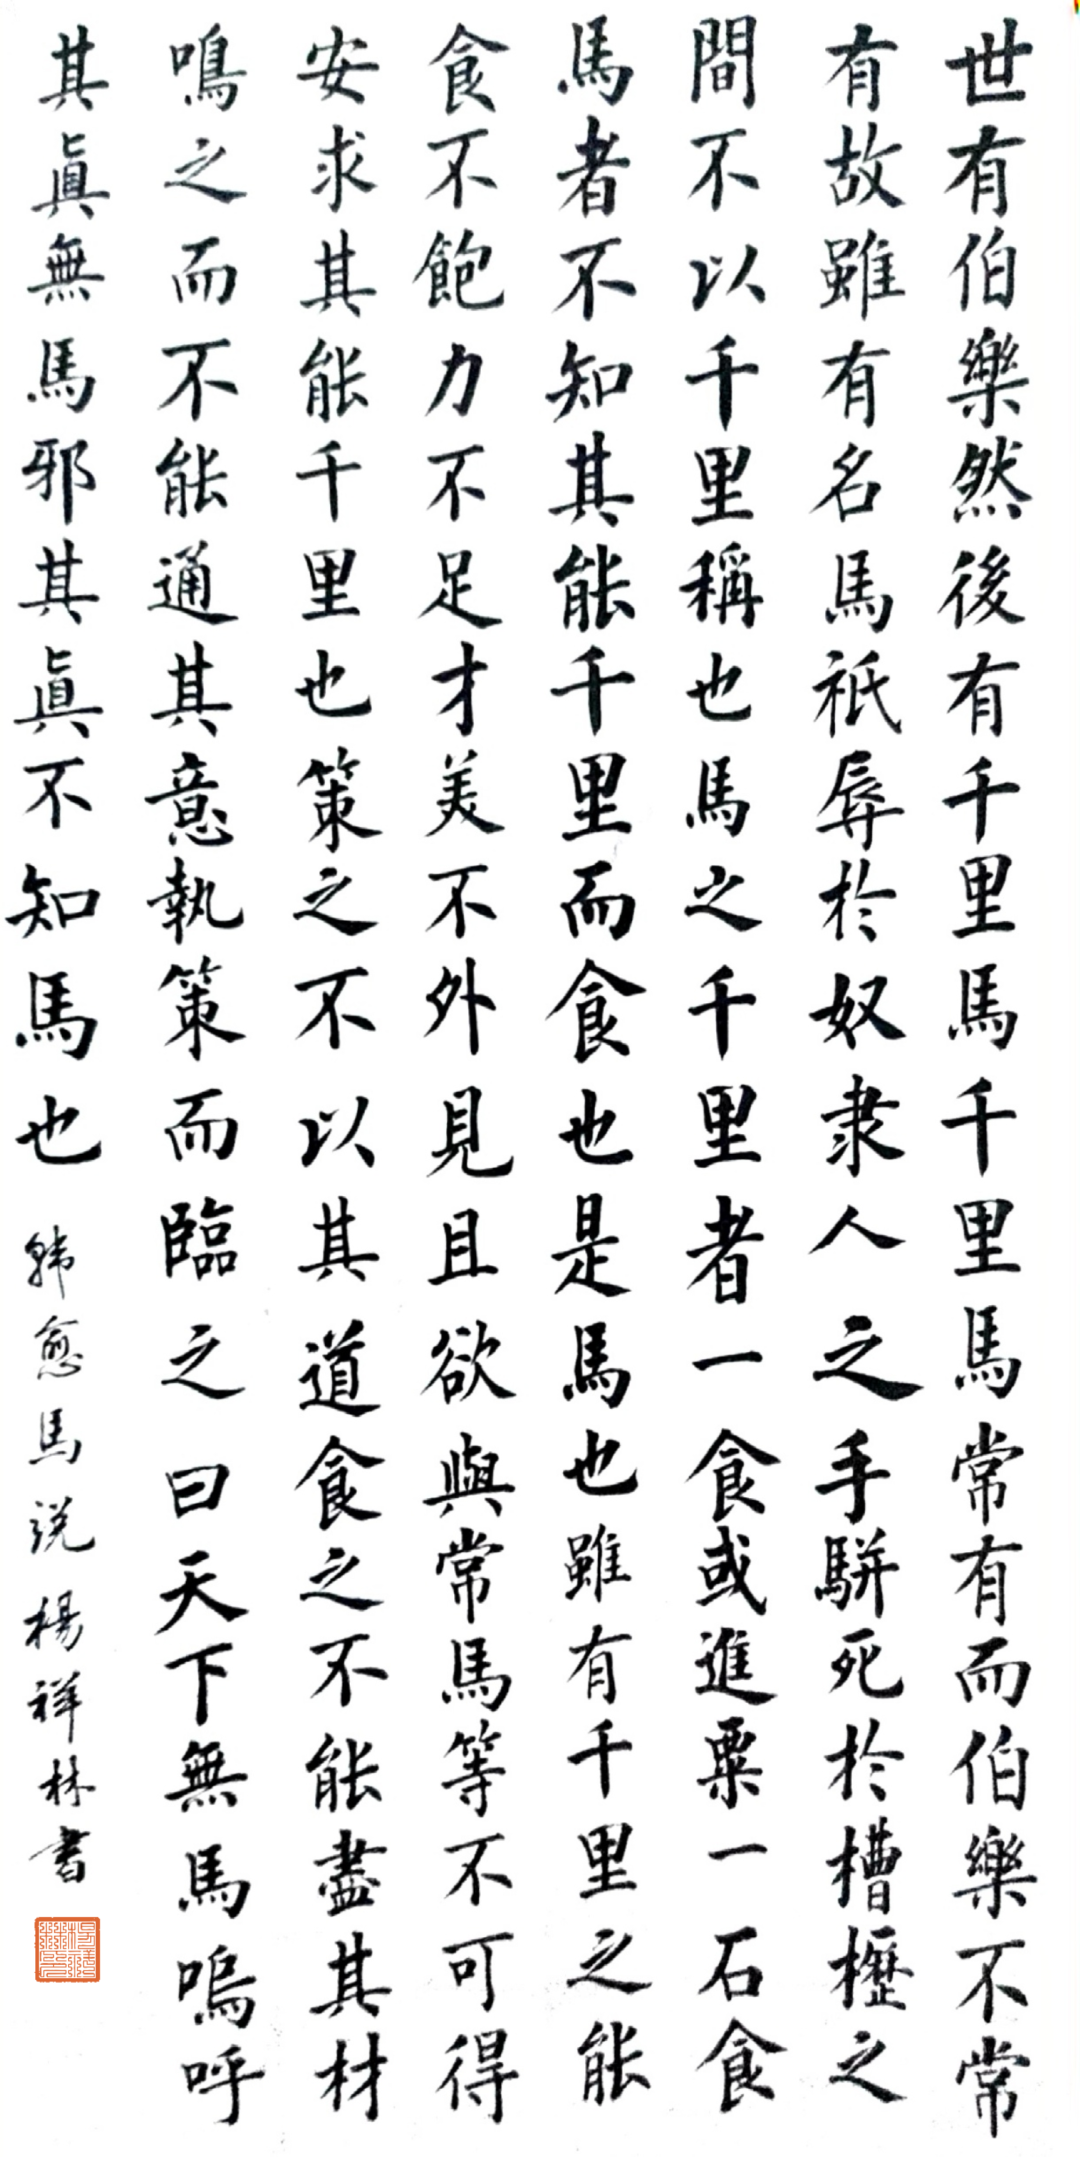 世有伯樂然後有千里馬千里馬常有而伯樂不常
有故雖有名馬祇辱於奴隶人之手駢死於槽櫪之
間不以千里稱也馬之千里者一食或進粟一石食
馬者不知其能千里而食也是馬也雖有千里之能
食不飽力不足才美不外見且欲與常馬等不可得
安求其能千里也策之不以其道食之不能盡其材
鳴之而不能通其意執策而臨之曰天下無馬嗚呼
其眞無馬邪其眞不知馬也 韩愈馬说 楊祥林書